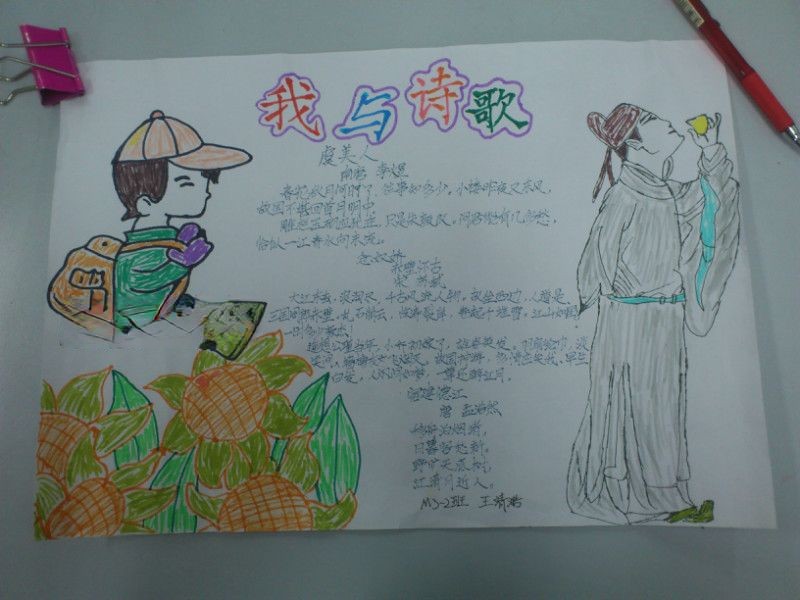 我与诗歌
虞美人
南唐 李煜
春花秋月何时了，往事知多少。小楼昨夜又东风，
故国不堪回首月明中
雕栏玉砌应犹在，只是朱颜改。问君能有几多愁，
恰似一江春水向东流。
念奴娇
赤壁怀古
宋 苏轼
大江东去，浪淘尽，千古风流人物，故垒西边，人道是，
三国周郎赤壁，乱石崩云，惊涛裂岸，卷起千堆雪，江山如画，
一时多少豪杰！
遥想公瑾当年，小乔初嫁了，雄姿英发，羽扇纶巾，谈
笑间，樯橹灰飞烟灭，故国神游，多情应笑我，早生
华发，人间如梦，一尊还酹江月。
宿建德江
唐 孟浩然
移舟泊烟渚，
日暮客愁新。
野旷天低树，
江清月近人。
M3-2班 王靖浩